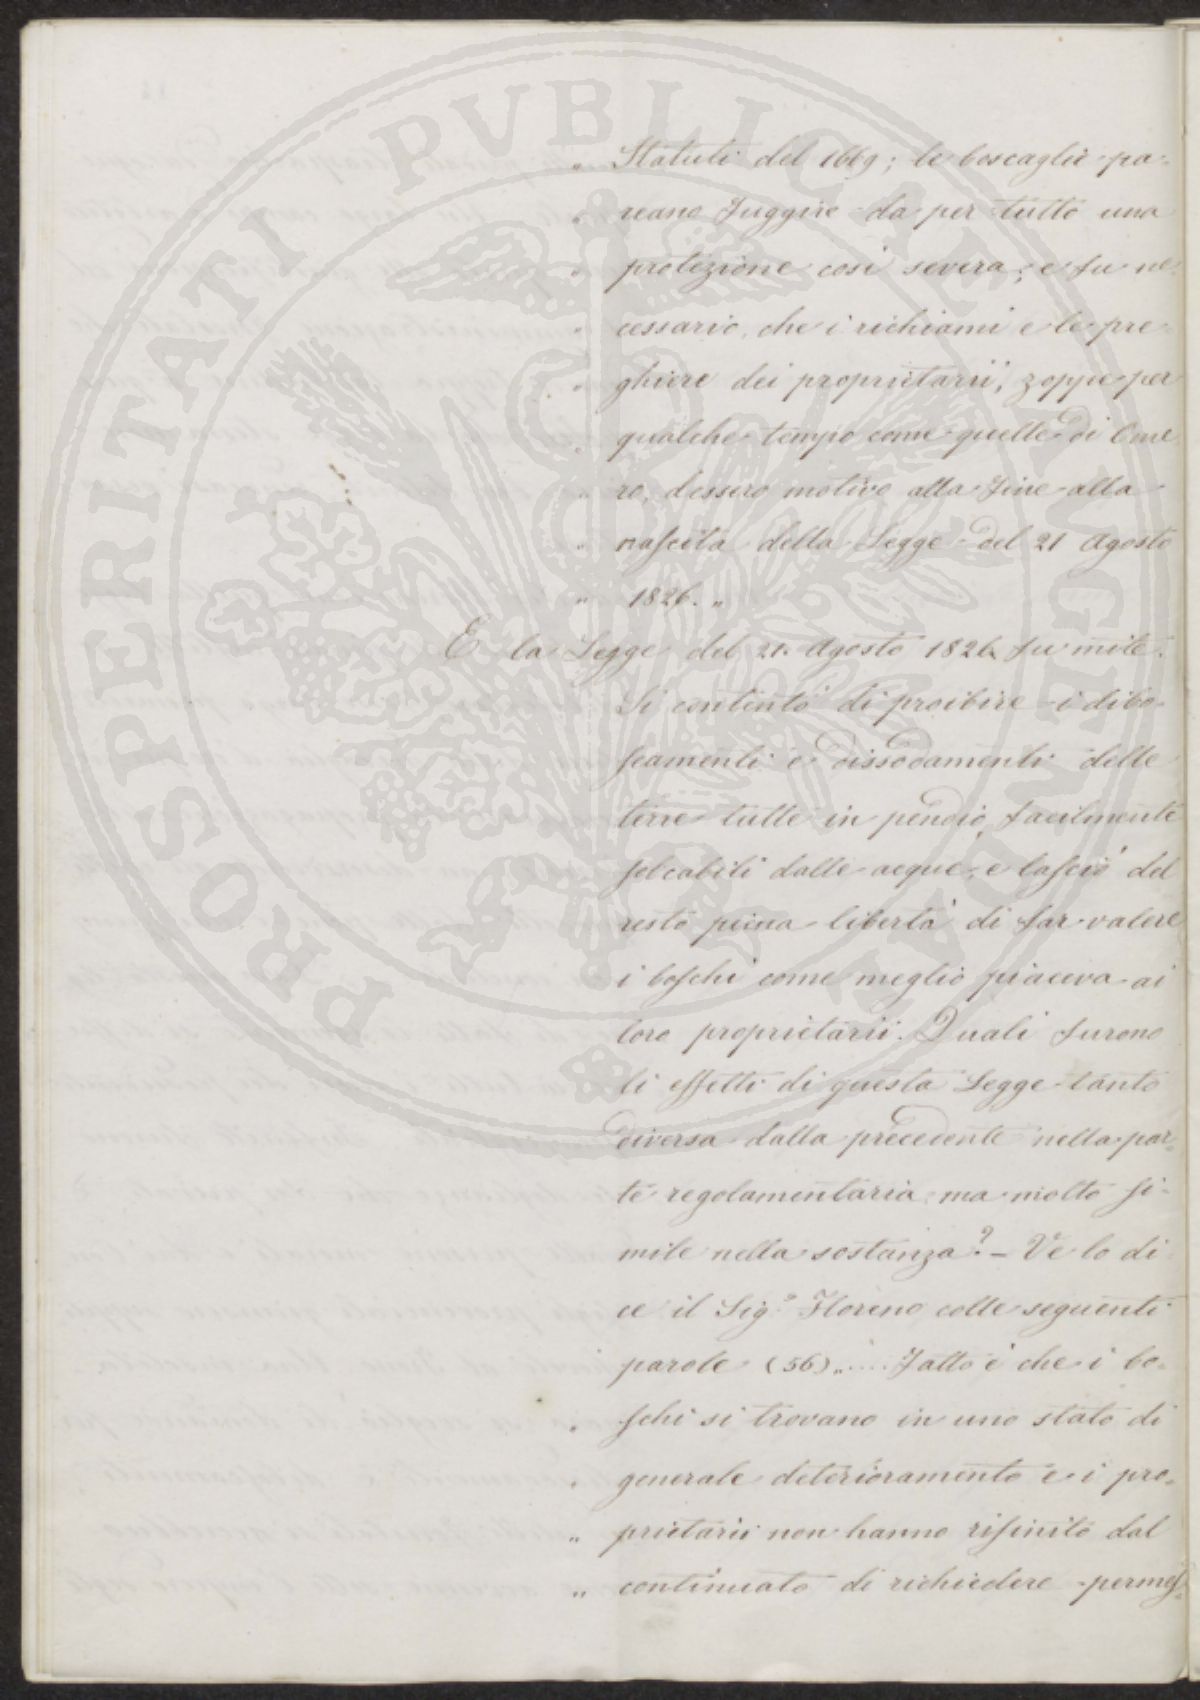 PROSPERITATI PVBLICAE AVGENDAE
„ Statuti del 1669; le boscaglie pa-
„ reano fuggire da per tutto una
„ protezione così severa; e fu ne-
„ cessario, che i richiami e le pre-
„ ghiere dei proprietarii, zoppe per
„ qualche tempo come quelle di Ome-
„ ro, dessero motivo alla fine alla
„ nascita della Legge del 21 Agosto
„ 1826. „
E la Legge del 21. Agosto 1826 fu mite.
Si contentò di proibire i dibo-
scamenti e dissodamenti delle
terre tutte in pendio, facilmente
solcabili dalle acque, e lasciò del
resto piena libertà di far valere
i boschi come meglio piaceva ai
loro proprietarii. Quali furono
li effetti di questa Legge tanto
diversa dalla precedente nella par-
te regolamentaria, ma molto si-
mile nella sostanza? – Ve lo di-
ce il Sig.r Floreno colle seguenti
parole (56) „.... Fatto è che i bo-
„ schi si trovano in uno stato di
„ generale deterioramento e i pro-
„ prietarii non hanno rifinito dal
„ continuato di richiedere permes-